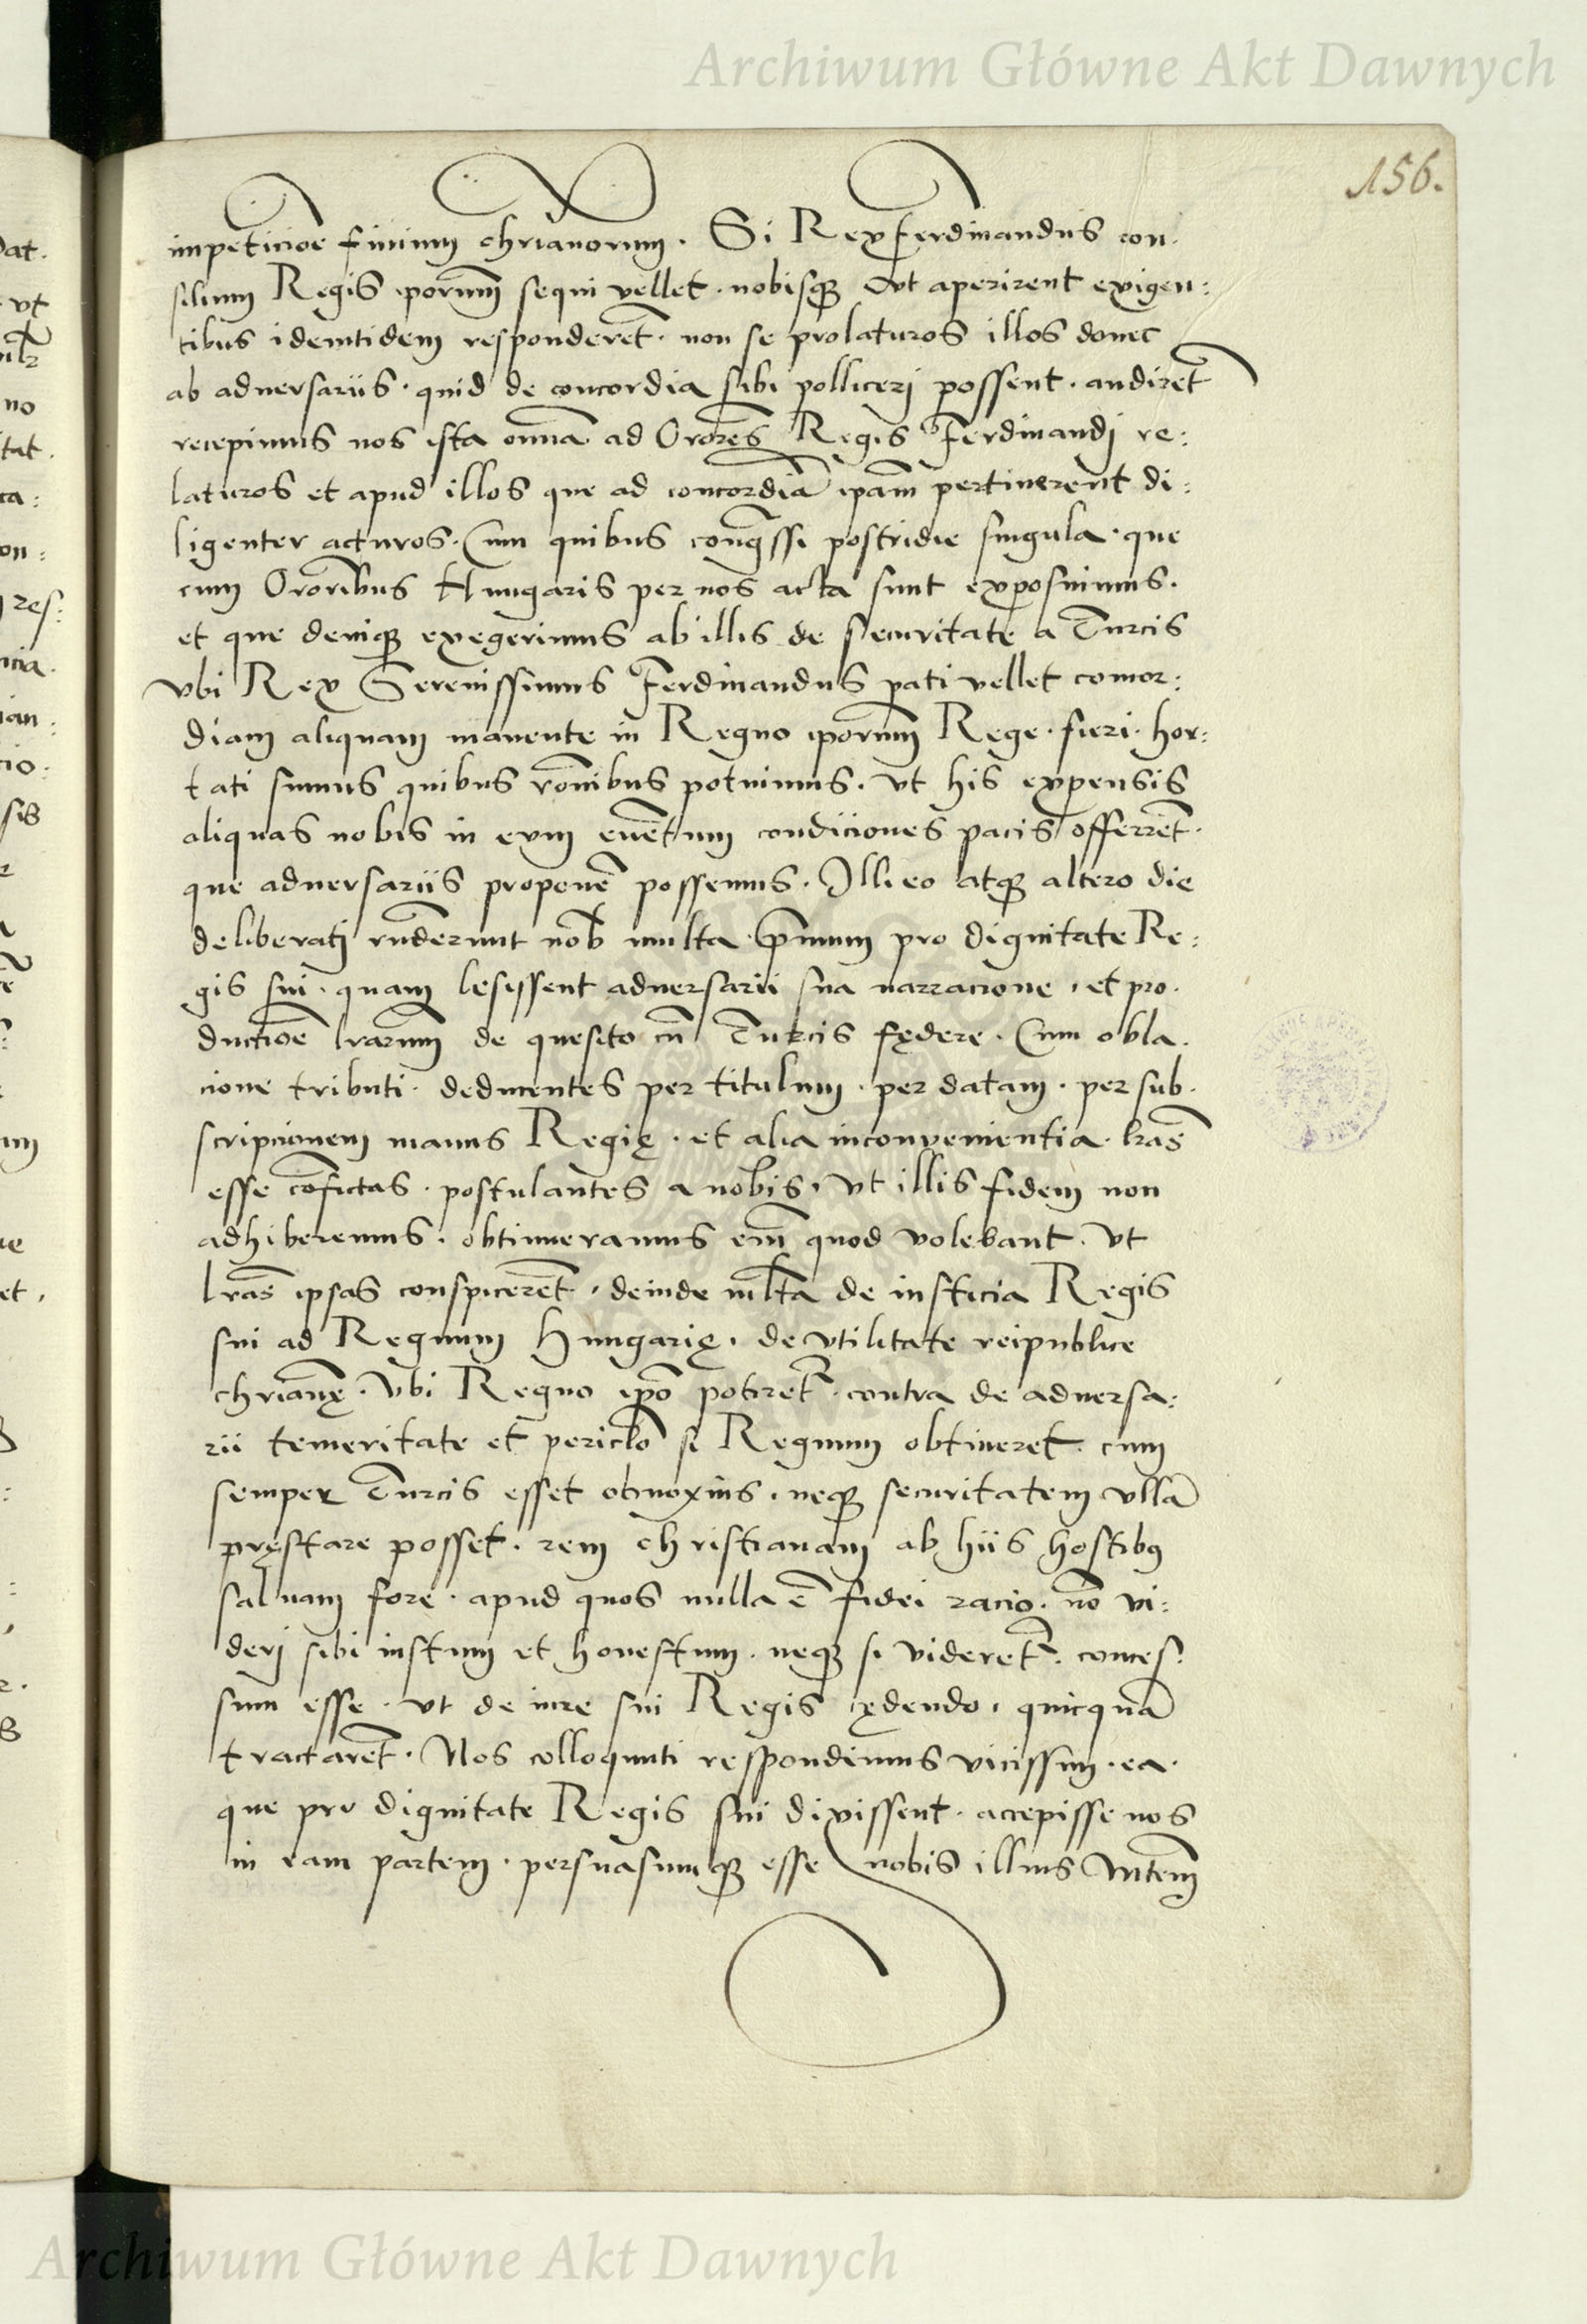 Archiwum Główne Akt Dawnych
156.
impeticioe finium chrianorum. Si Rex Ferdinandus con:
silium Regis iporum sequi vellet. nobisque Vt aperirent exigen:
tibus identidem responderet. non se prolaturos illos donec
ab adversariis. quid de concordia sibi pollicerj possent. audiret
recepimus nos ista omnia ad Orores Regis Ferdinandj re:
laturos et apud illos que ad concordia ipam pertinerent di:
ligenter acturos. Cum quibus congressi postridie singula. que
cum Ororibus Hungaris per nos acta sunt exposuimus.
et que denique exegerimus ab illis de securitate a Turcis
vbi Rex Serenissimus Ferdinandus pati vellet concor:
diam aliquam manente in Regno iporum Rege. fieri. hor:
tati sumus quibus ronibus potuimus. vt his expensis
aliquas nobis in eum eventum condiciones pacis offerret.
que adversariis propone possemus. Illi eo atque altero die
deliberatj runderunt nob multa. Primum pro dignitate Re:
gis sui. quam lesissent adversarii sua narracione. et pro.
ductioe lrarum de quesito cu Turcis fędere. Cum obla.
cione tributi. deducentes per titulum. per datam. per sub.
scripcionem manus Regię. et alia inconvenientia. lras
esse confictas. postulantes a nobis. vt illis fidem non
adhiberemus. obtinueramus eni quod volebant. Vt
lras ipsas conspicerent. deinde multa de iusticia Regis
sui ad Regnum Hungarię. de vtilitate reipublice
chrianę. Vbi Regno ipo potiret. contra de adversa:
rii temeritate et periclo si Regnum obtineret. cum
semper Turcis esset obnoxius. neque securitatem vlla
pręstare posset. rem christianam ab hiis hostibus
salvam fore. apud quos nulla e fidei racio. no vi:
derj sibi iustum et honestum. neque si videret. conces:
sum esse. vt de iure sui Regis cędendo. quicqua
tractaret. Nos colloquuti respondimus vicissim. ea.
que pro dignitate Regis sui dixissent. accepisse nos
in eam partem. persuasumque esse nobis illius Mtem
Archiwum Główne Akt Dawnych